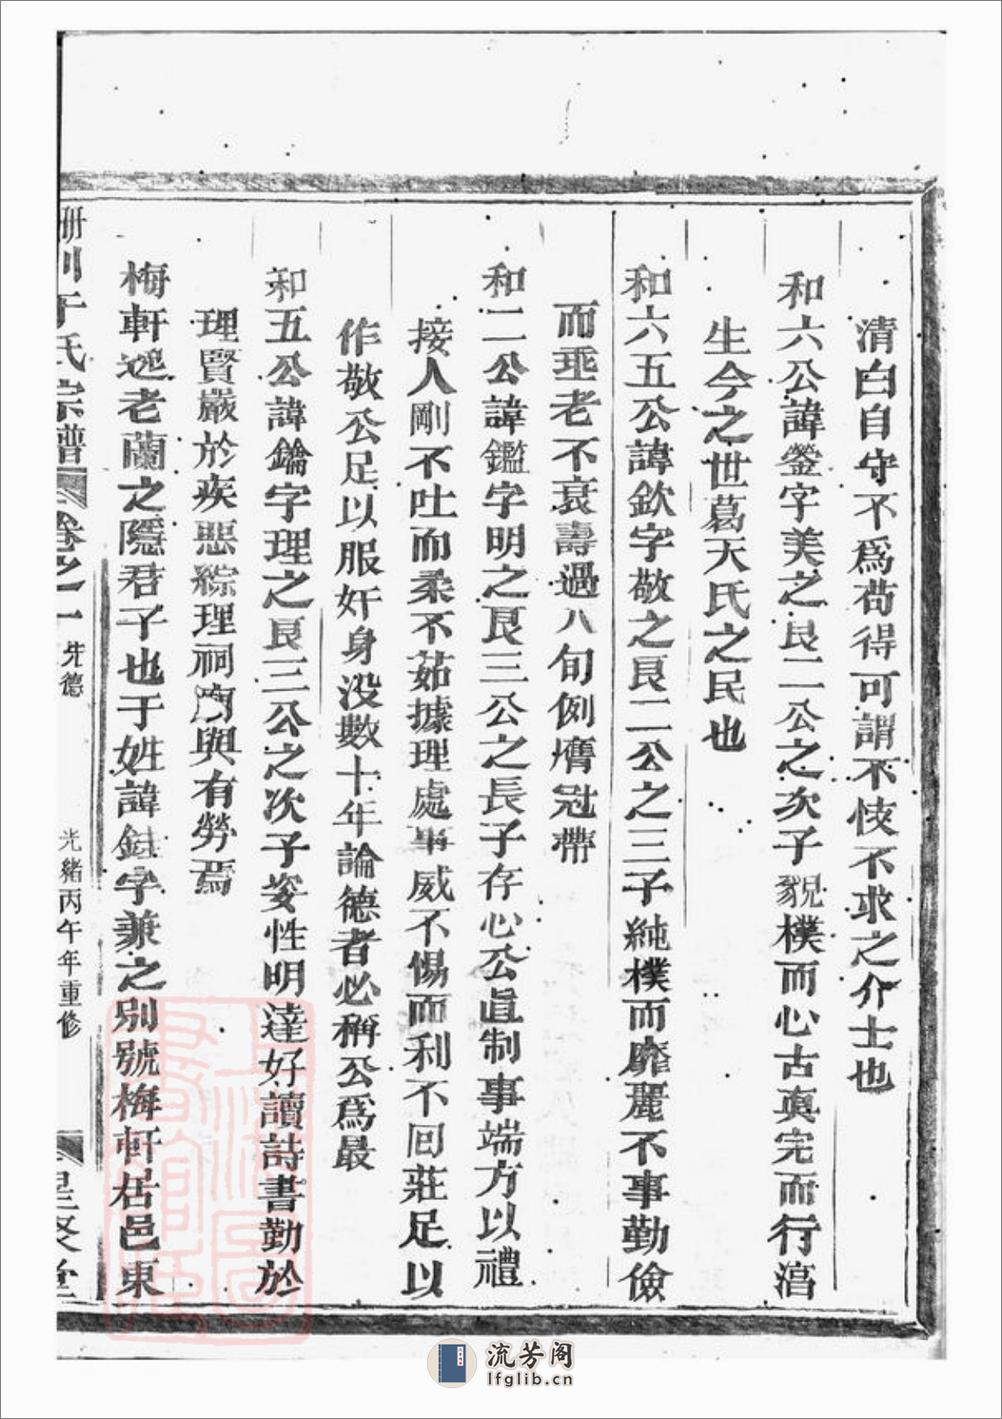 清白自守不爲苟得可謂不忮不求之介士也
和六公諱鎣字美之艮二公之次子貌樸而心古真完而行淳
生今之世葛天氏之民也
和六五公諱欽字敬之艮二公之三子純樸而靡麗不事勤儉
而乖老不衰壽過八旬例膺冠帶
和二公諱鑑字明之艮三公之長子存心公直制事端方以禮
接人剛不吐而柔不茹據理處事威不惕而利不囘莊足以
作敬公足以服奸身没數十年論德者必稱公爲最
和五公諱鑰字理之艮三公之次子姿性明達好讀詩書勤於
理賢嚴於疾惡綜理祠與有勞焉
梅軒逸老蘭之隱君子也于姓諱字兼之別號梅軒居邑東
于氏宗譜 卷之一 先德 光緒丙午年重修 星聚堂
流芳阁
lfglib.cn